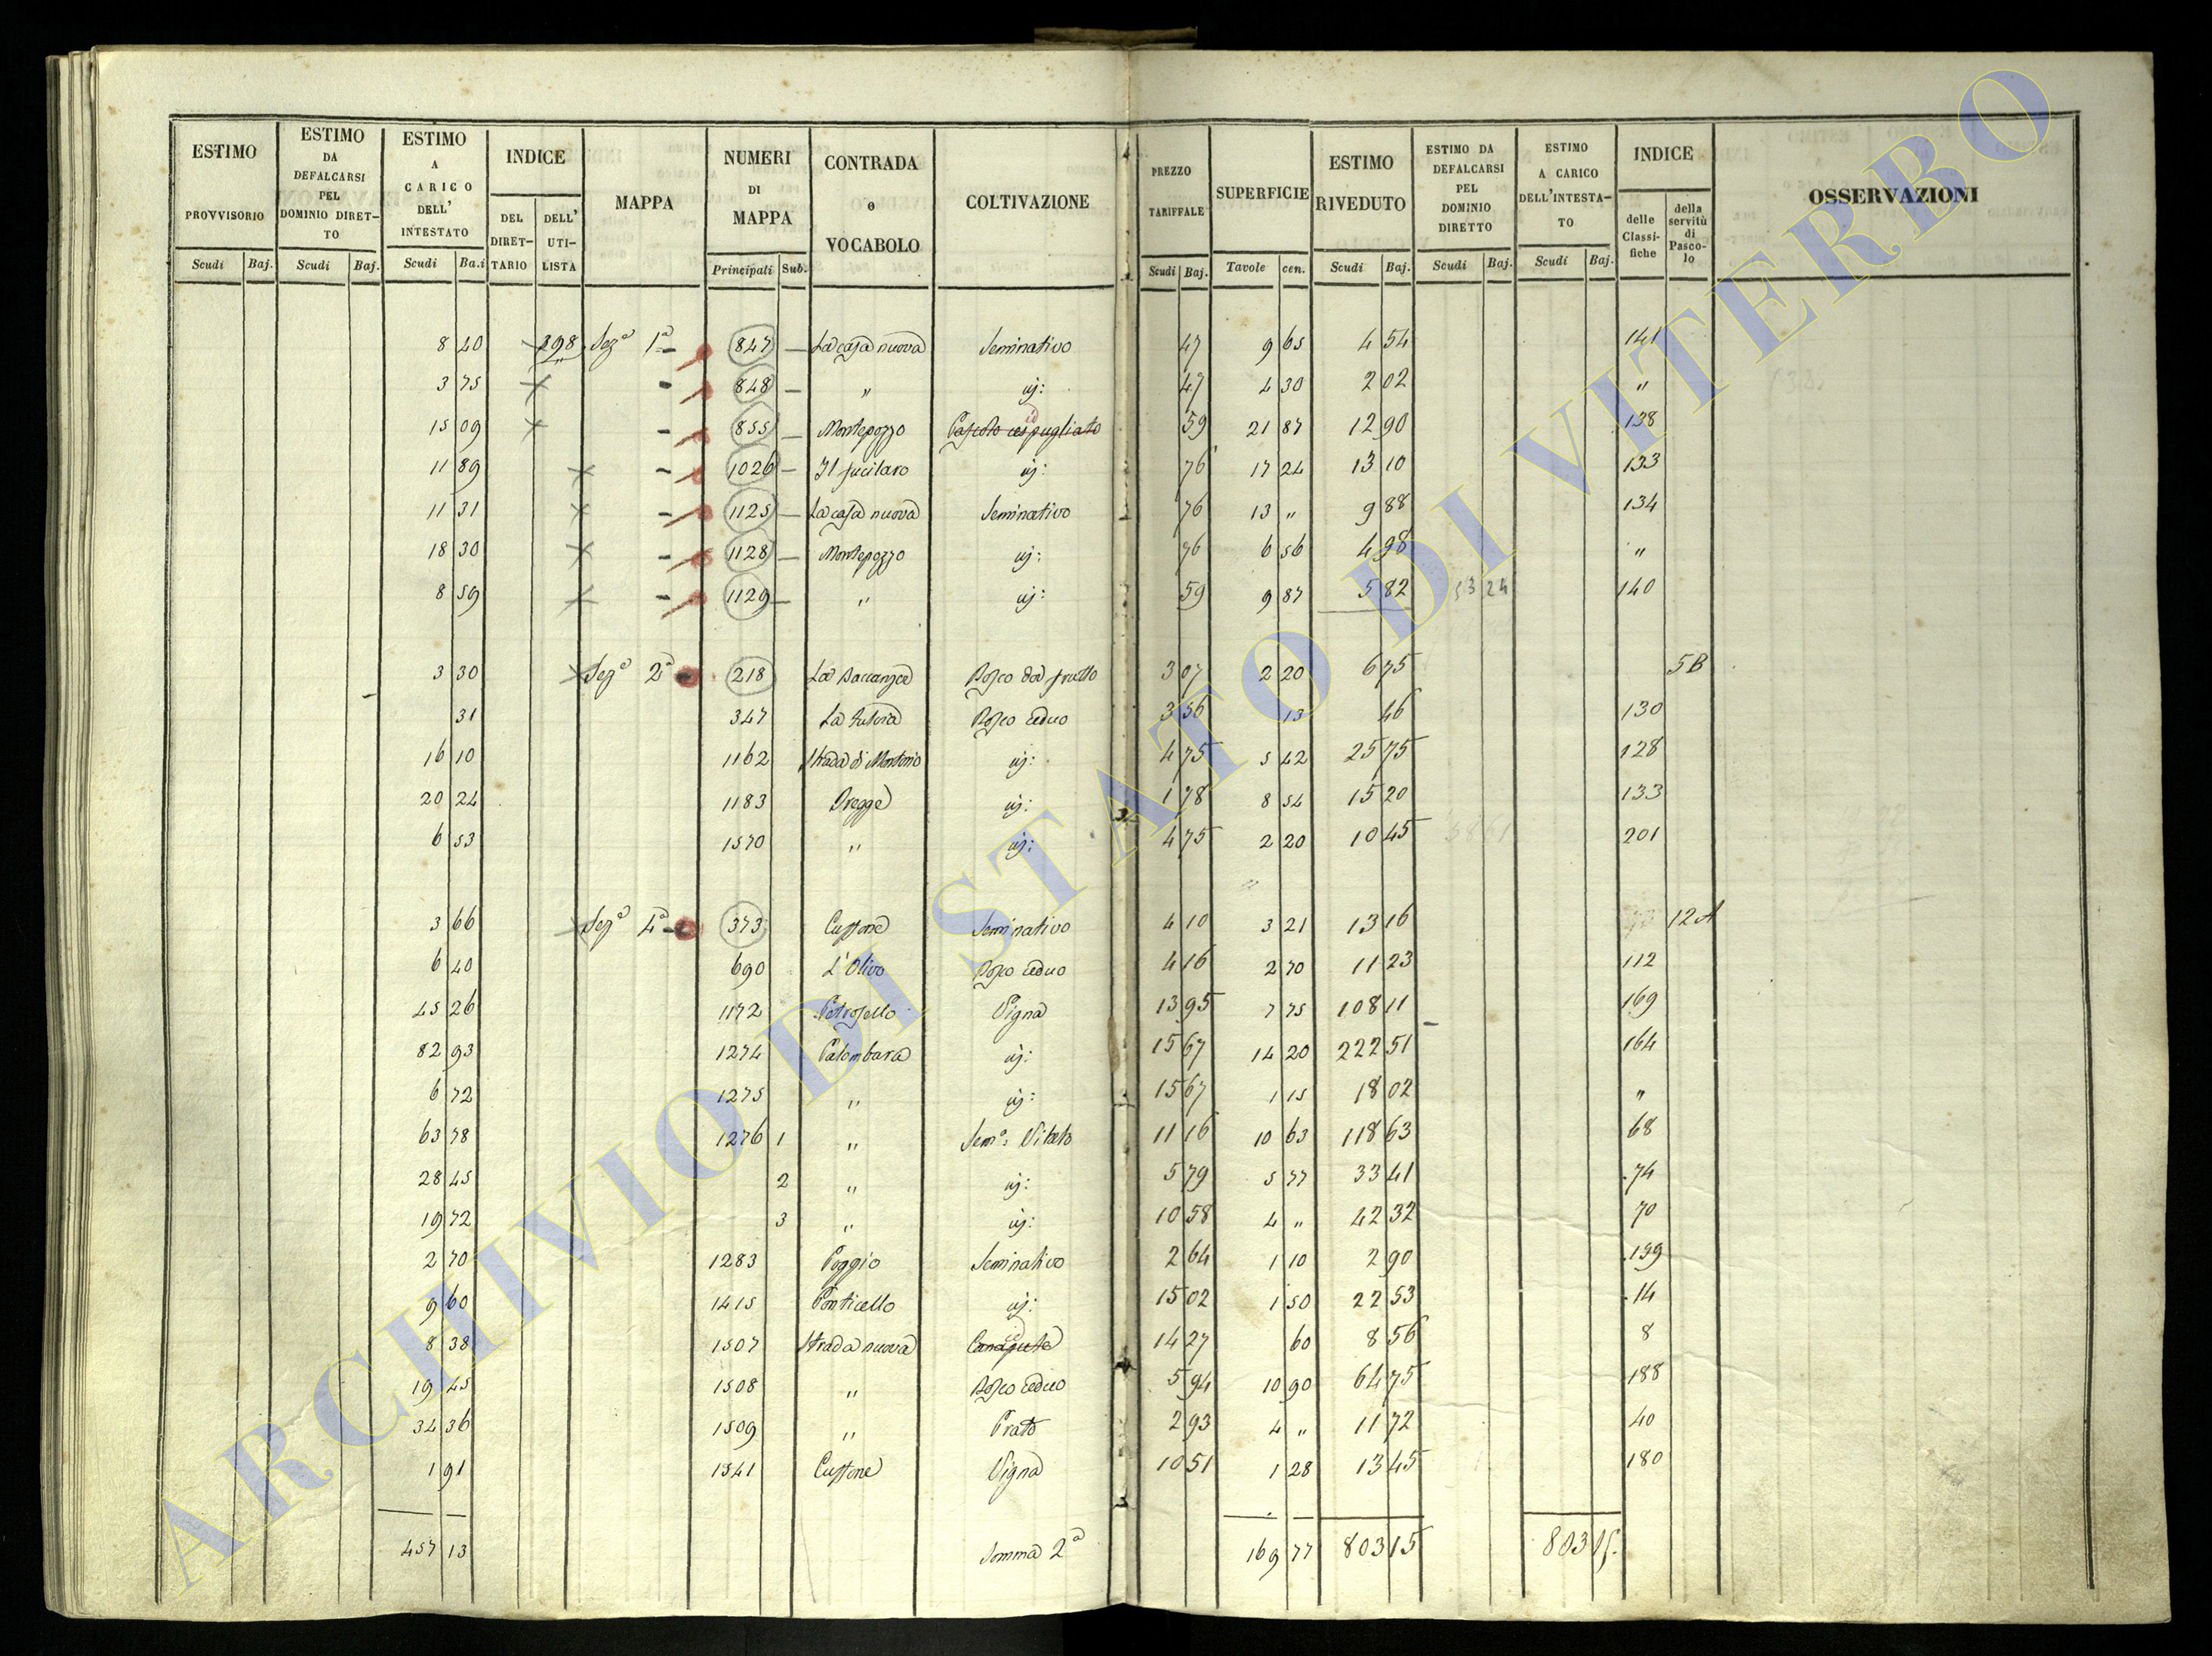 ESTIMO PROVVISORIO | ESTIMO DA DEFALCARSI PEL DOMINIO DIRET-TO | ESTIMO A CARICO DELL' INTESTATO | INDICE | MAPPA | NUMERI DI MAPPA | CONTRADA O VOCABOLO | COLTIVAZIONE | PREZZO TARIFFALE | SUPERFICIE | ESTIMO RIVEDUTO | ESTIMO DA DEFALCARSI PEL DOMINIO DIRETTO | ESTIMO A CARICO DELL'INTESTA-TO | INDICE | OSSERVAZIONI
DEL DIRET-TARIO | DELL' UTI-LISTA | delle Classi-fiche | della servitù di Pasco-lo
Scudi | Baj. | Scudi | Baj. | Scudi | Ba.i | Principali | Sub. | Scudi | Baj. | Tavole | cen. | Scudi | Baj. | Scudi | Baj. | Scudi | Baj.
8 40 | 298 | Sezᵉ 1ª | 847 | La casa nuova | Seminativo | 47 | 9 65 | 4 54 | 141
3 75 | 848 | " | id: | 47 | 4 30 | 2 02 | "
15 09 | 855 | Montepozzo | Pascolo cespugliato | 59 | 21 87 | 12 90 | 138
11 89 | 1026 | Il fucilaro | id: | 76 | 17 24 | 13 10 | 133
11 31 | 1125 | La casa nuova | Seminativo | 76 | 13 " | 9 88 | 134
18 30 | 1128 | Montepozzo | id: | 76 | 6 56 | 4 98 | "
8 59 | 1129 | " | id: | 59 | 9 87 | 5 82 | 53 24 | 140
3 30 | Sezᵉ 2ª | 218 | La | Bosco da frutto | 3 07 | 2 20 | 6 75 | 5B
31 | 347 | La | Bosco ceduo | 3 56 | 13 | 46 | 130
16 10 | 1162 | Strada di Montorio | id: | 4 75 | 5 42 | 25 75 | 128
20 24 | 1183 | | id: | 1 78 | 8 54 | 15 20 | 133
6 53 | 1570 | " | id: | 4 75 | 2 20 | 10 45 | 201
3 66 | Sezᵉ 4ª | 373 | | Seminativo | 4 10 | 3 21 | 13 16 | 12A
6 40 | 690 | L'Olivo | Bosco ceduo | 4 16 | 2 70 | 11 23 | 112
45 26 | 1172 | Petrosello | Vigna | 13 95 | 7 75 | 108 11 | 169
82 93 | 1274 | Palombara | id: | 15 67 | 14 20 | 222 51 | 164
6 72 | 1275 | " | id: | 15 67 | 1 15 | 18 02 | "
63 78 | 1276 | 1 | " | Semᵒ: Vitato | 11 16 | 10 63 | 118 63 | 68
28 45 | 2 | " | id: | 5 79 | 5 77 | 33 41 | 74
19 72 | 3 | " | id: | 10 58 | 4 " | 42 32 | 70
2 70 | 1283 | Poggio | Seminativo | 2 64 | 1 10 | 2 90 | 199
9 60 | 1415 | Ponticello | id: | 15 02 | 1 50 | 22 53 | 14
8 38 | 1507 | Strada nuova | Canapule | 14 27 | 60 | 8 56 | 8
19 45 | 1508 | " | Bosco ceduo | 5 94 | 10 90 | 64 75 | 188
34 36 | 1509 | " | Prato | 2 93 | 4 " | 11 72 | 40
1 91 | 1541 | | Vigna | 10 51 | 1 28 | 13 45 | 180
457 13 | Somma 2ª | 169 77 | 803 15 | 803 15.
ARCHIVIO DI STATO DI VITERBO